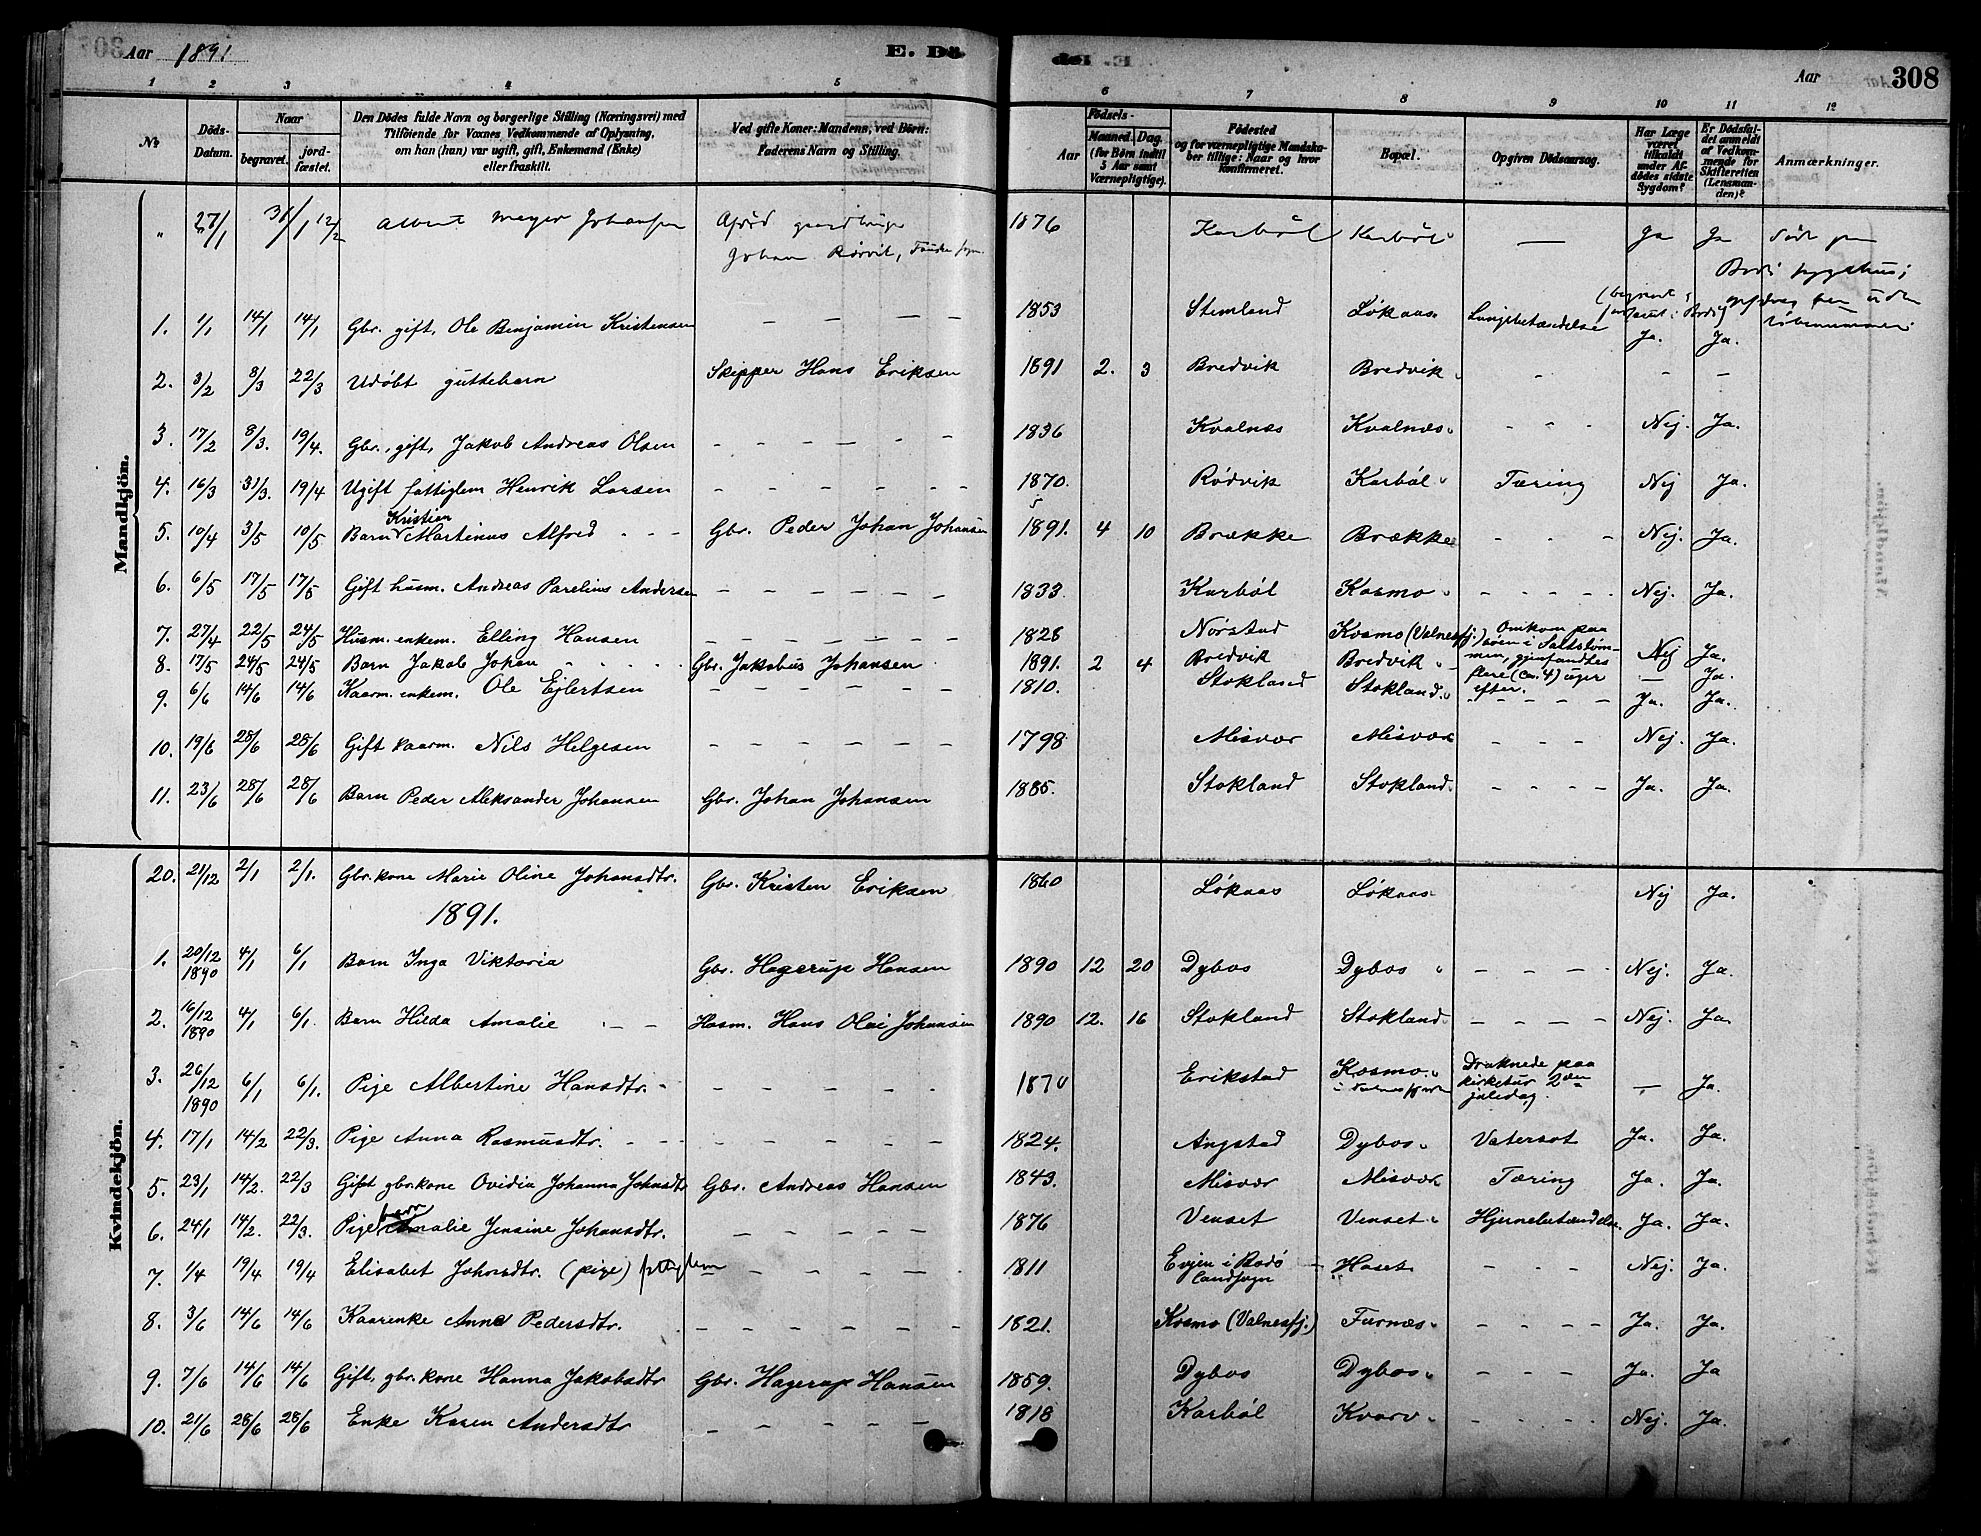 Aar 1891. E. Dö
Aar 308
1 2 3 4 5 6 7 8 9 10 11 12
№ Döds-Datum. Naar begravet. jordfæstet. Den Dödes fulde Navn og borgerlige Stilling (Næringsvei) med Tilföiende for Voxnes Vedkommende af Oplysning, om han (hun) var ugift, gift, Enkemand (Enke) eller fraskilt. Ved gifte Koner: Mandens, ved Börn: Faderens Navn og Stilling. Födsels- Aar Maaned. Dag. (for Börn indtil 5 Aar samt Værnepligtige). Födested og for værnepligtige Mandskaber tillige: Naar og hvor Konfirmeret. Bopæl. Opgiven Dödsaarsag. Har Læge været tilkaldt under Afdödes sidste Sygdom? Er Dödsfaldet anmeldt af Vedkommende for Skifteretten (Lensmanden)? Anmærkninger.
Mandkjön.
" 27/1 31/1 12/2 Albert Meyer Johansen Johan Rörvik, 1876 Karböl Karböl — Ja Ja
1. 1/1 14/1 14/1 Gbr. gift, Ole Benjamin Kristensen – – – – 1853 Stemland Løkaas Lungebetændelse Ja. Ja.
2. 3/2 8/3 22/3 Udøbt guttebarn Skipper Hans Eriksen 1891 2. 3 Bredvik Bredvik - - –
3. 17/2 8/3. 19/4. Gbr., gift, Jakob Andreas Olsen – – – – – – 1836 Kvalnæs Kvalnæs - - - Nej. Ja.
4. 16/3 31/3. 19/4 Ugift fattiglem Henrik Larsen – – – – – – 1870. Rødvik Karbøl Tæring Nej Ja.
5. 10/4 3/5 10/5 Barn Kristian Martinus Alfred - - - Gbr. Peder Johan Johansen 1891. 4 10 Brække Brække - - - Nej. Ja.
6. 6/5 17/5 17/5 Gift husm. Andreas Parelius Andersen – – – – – – 1833. Karbøl Kosmo - - - - - Nej. Ja.
7. 27/4 22/5 24/5 Husm. enkem. Elling Hansen – – – – – – 1828 Nørstad Kosmo (Valnesfj.) Omkom paa søen i Saltstømmen, gjenfandtes flere (ca. 4) uger efter. Nej Ja.
8. 17/5 24/5 24/5 Barn Jakob Johan - - - - Gbr. Jakobus Johansen 1891. 2 4 Bredvik Bredvik — Ja.
9. 6/6 14/6 14/6 Kaarm. enkem. Ole Ejlertsen – – – – – – 1810. Stokland Stokland - - - - - Ja. Ja.
10. 19/6 28/6 28/6 Gift kaarm. Nils Helgesen – – – – – – 1798 Misvær Misvær - - - Nej. Ja.
11. 23/6 28/6 28/6 Barn Peder Aleksander Johansen Gbr. Johan Johansen 1885. Stokland Stokland - - - - Ja. Ja.
Kvindekjön.
20. 21/12 2/1 2/1. Gbr. kone Marie Oline Johansdtr. Gbr. Kristen Eriksen 1860 Løkaas Løkaas Nej Ja.
1891.
1. 20/12 1890 4/1 6/1 Barn Inga Viktoria Gbr. Hagerup Hansen 1890 12 20 Dybos Dybos - - - - Nej. Ja.
2. 16/12 1890 4/1 6/1. Barn Hilda Amalie - - - Husm. Hans Olai Johansen 1890 12. 16 Stokland Stokland - - - - Nej. Ja.
3. 26/12 1890 6/1 6/1. Pige Albertine Hansdtr. - 1870 Erikstad Kosmo i Valnesfjorden Druknede paa kirketur 2den juledag. — Ja.
4. 17/1 14/2 22/3. Pige Anna Rasmusdtr. - - - – – – – – 1824. Angstad Dybos Vatersot Ja. Ja.
5. 23/1 14/2. 22/3 Gift gbr. kone Ovidia Johanna Johnsdtr Gbr. Andreas Hansen 1843. Misvær Misvær Tæring Ja. Ja.
6. 24/1 14/2. 22/3. Pigebarn Amalie Jensine Johansdtr. – – – – – 1876 Venset Venset Hjernebetændelse Ja. Ja.
7. 1/4 19/4 19/4 Elisabet Johnsdtr. (pige) fattiglem – – – – – 1811 Evjen i Bodö landsogn Haset - - - Nej. Ja.
8. 3/6 14/6 14/6 Kaarenke Anne Pedersdtr. – – – – – – 1821. Kosmo (Valnesfj.) Furnæs - - - - Ja. Ja.
9. 7/6 14/6 14/6 Gift, gbr. kone Hanna Jakobsdtr Gbr. Hagerup Hansen 1859. Dybos Dybos - - - Ja. Ja
10. 21/6 28/6 28/6 Enke Karen Andersdtr – – – – – 1818 Karbøl Kvarv - - - - Nej. Ja.